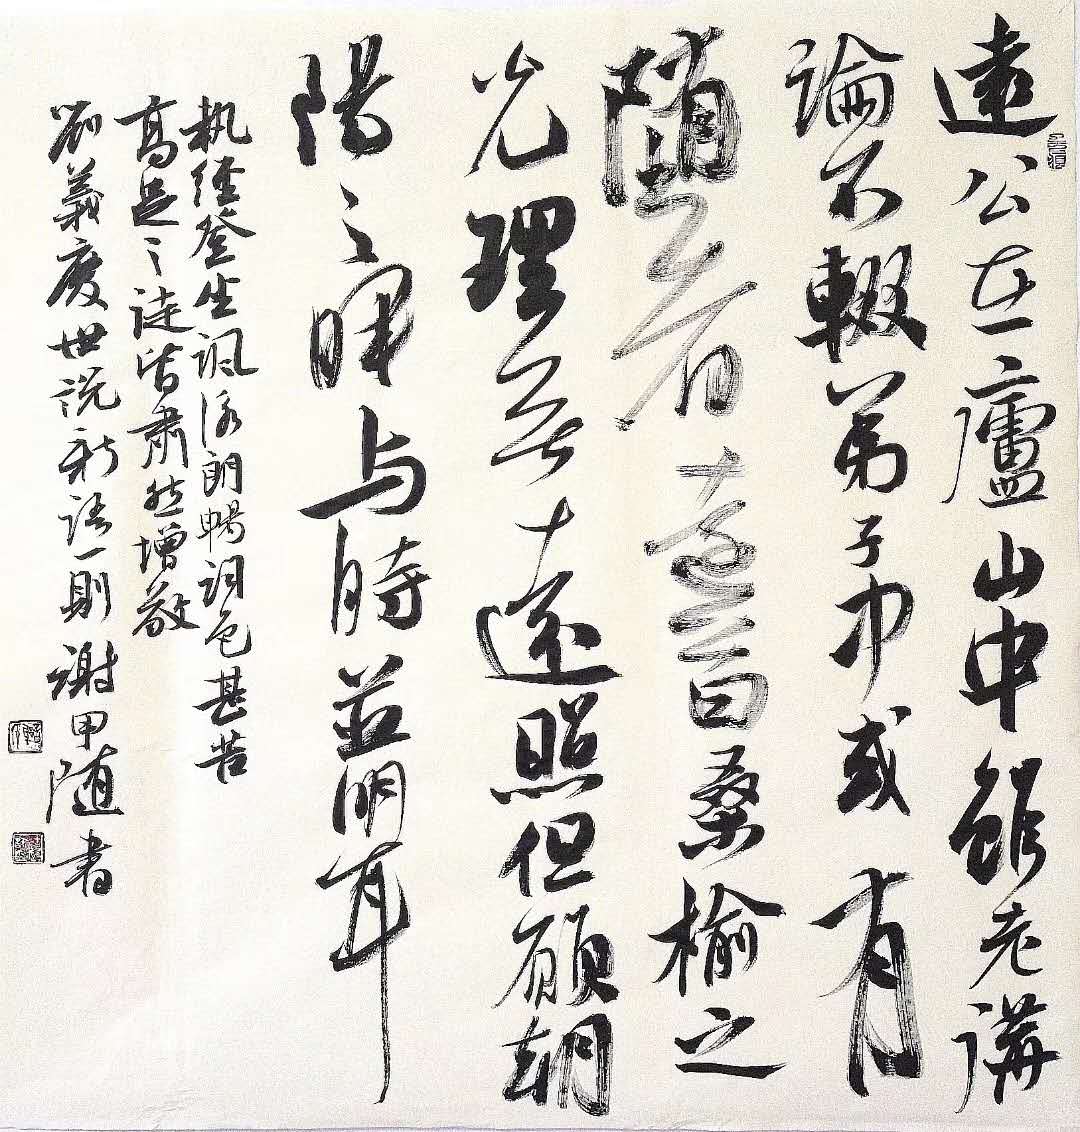 遠公在廬山中雖老講
論不輟弟子中或有
隨者遠公曰桑榆之
光理無遠照但願朝
陽之暉與時並明耳
執經登坐諷誦朗暢詞色甚苦
高足之徒皆肅然增敬
劉義慶世說新語一則謝甲隨書